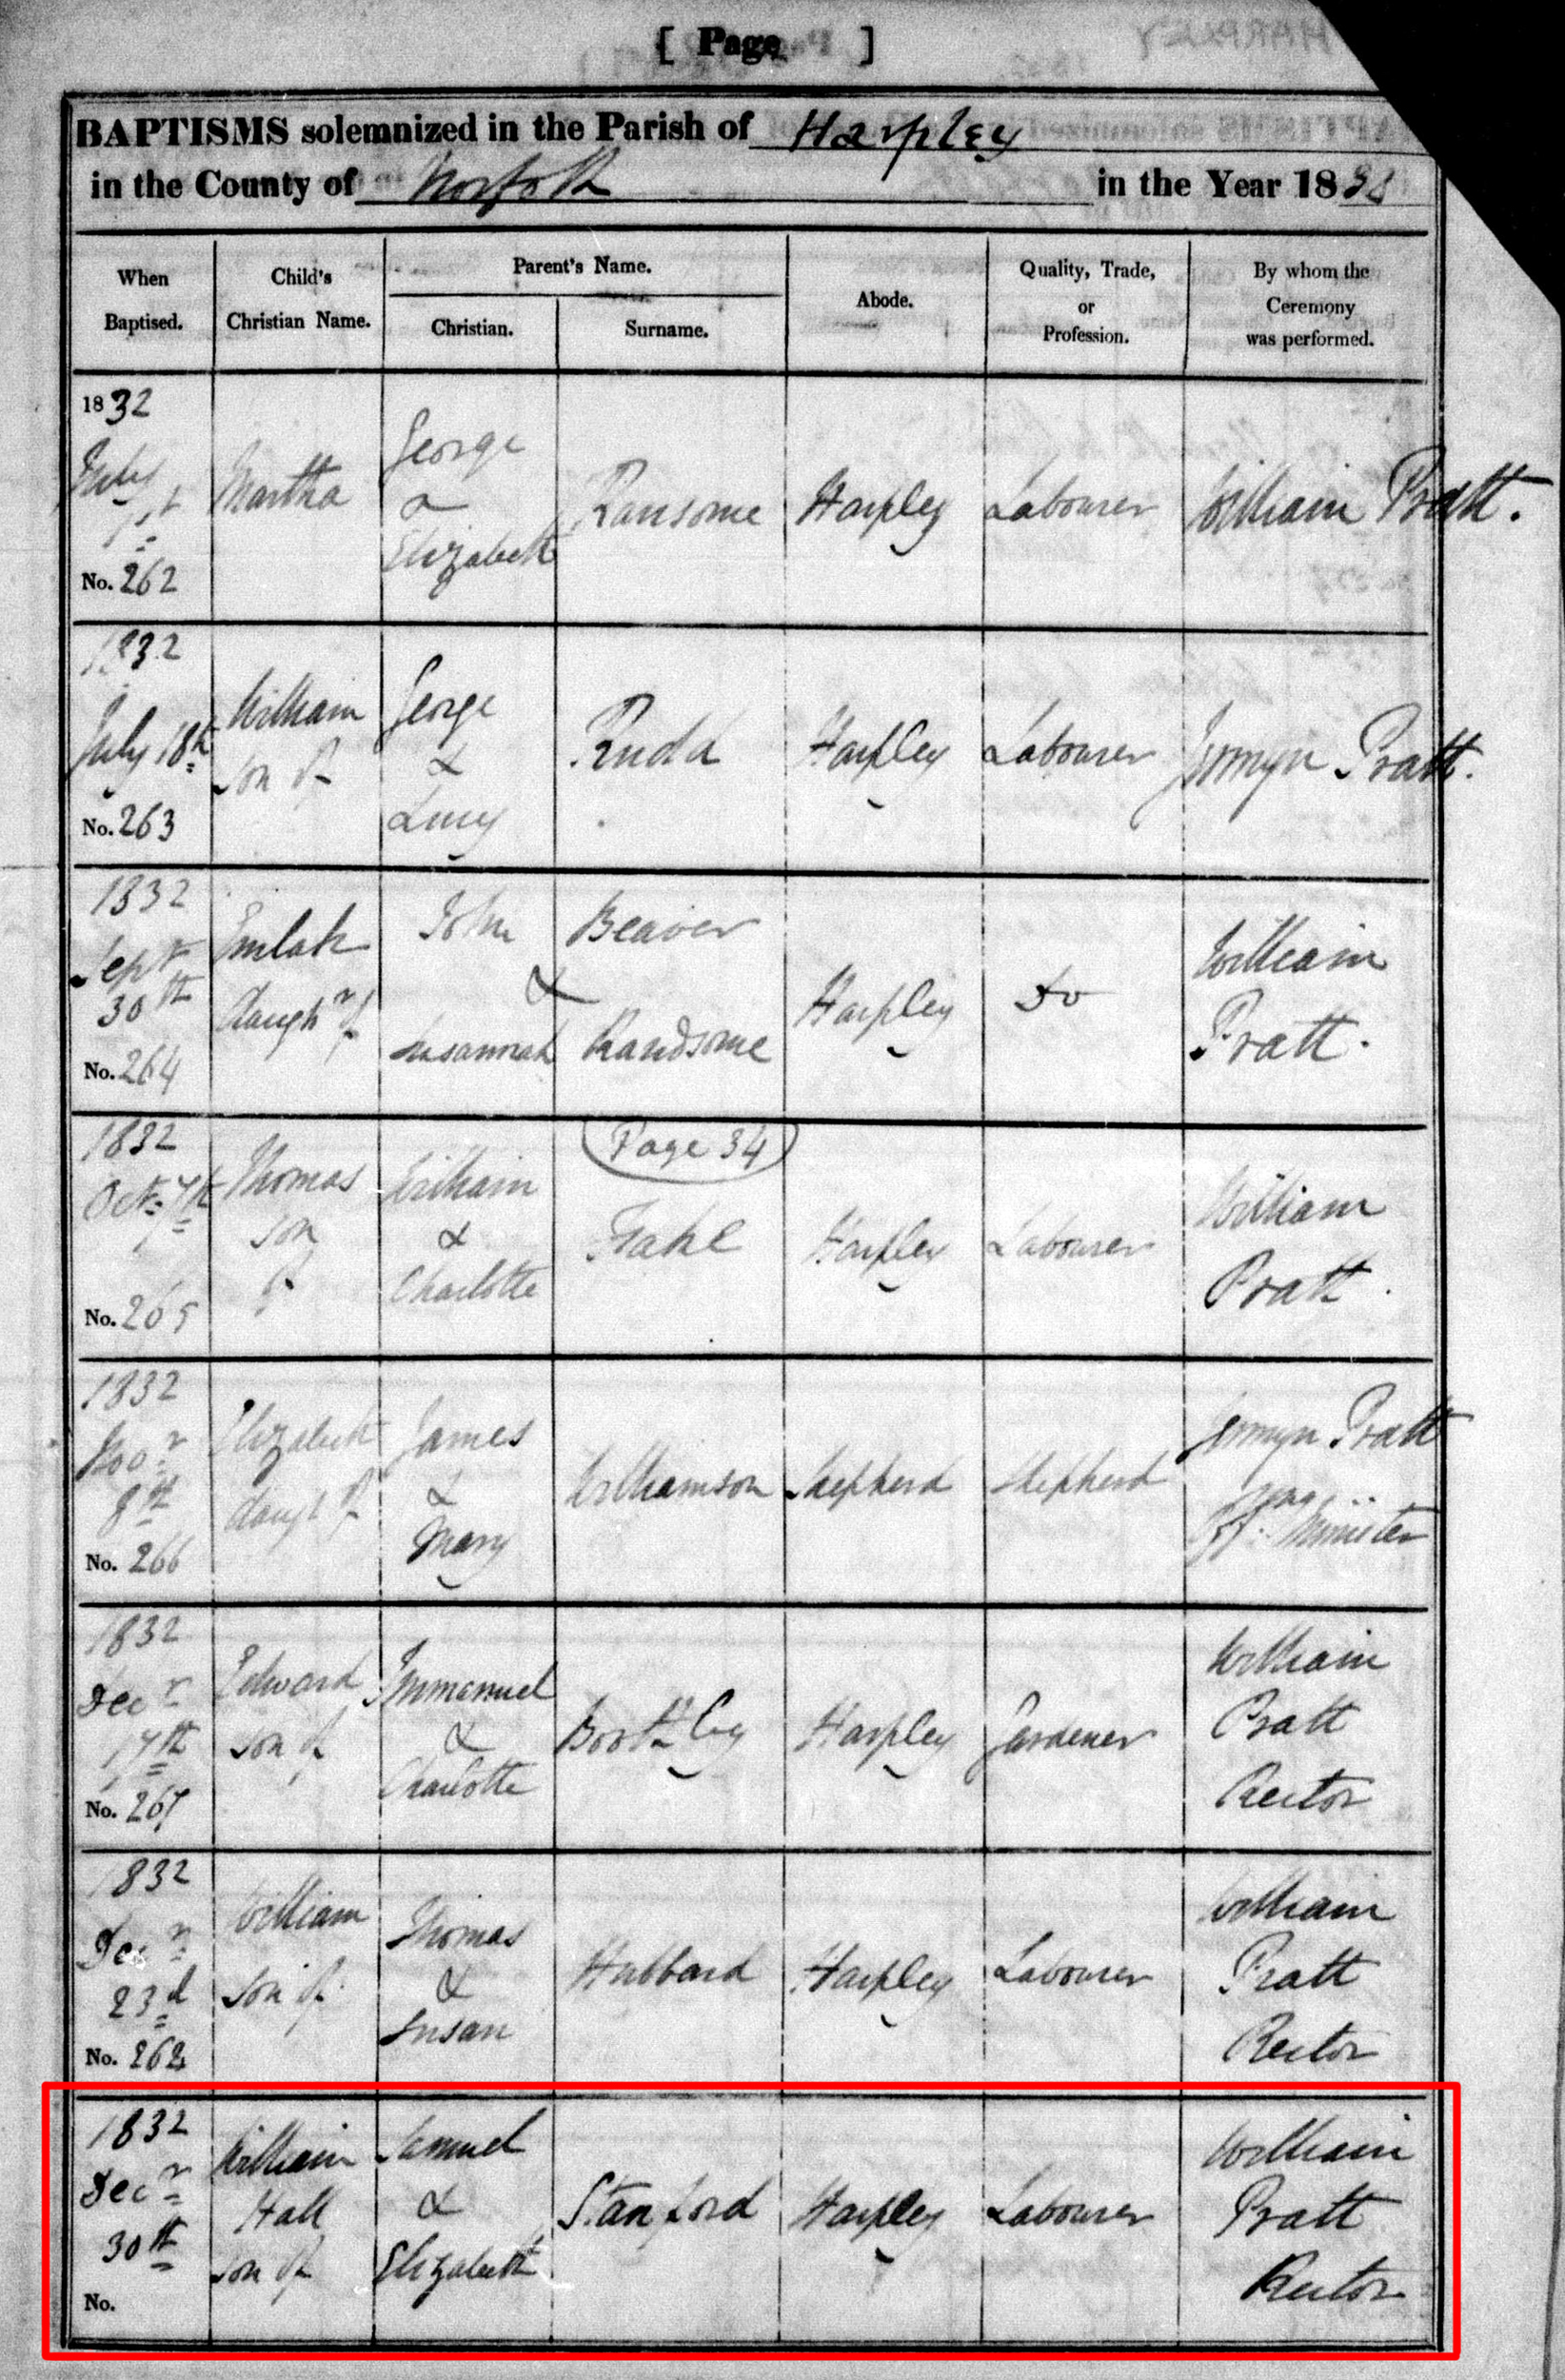 [ Page ]
BAPTISMS solemnized in the Parish of Harpley
in the County of Norfolk in the Year 18
When Baptised.
Child's Christian Name.
Parent's Name.
Christian.
Surname.
Abode.
Quality, Trade, or Profession.
By whom the Ceremony was performed.
1832
July
1st
No. 262
Martha
George
&
Elizabeth
Ransome
Harpley
Labourer
William Pratt.
1832
July 18th
No. 263
William
son of
George
&
Lucy
Rudd
Harpley
Labourer
Jermyn Pratt.
1832
Sept
30th
No. 264
daughr of
John Beaver
&
Susannah Randsome
Harpley
Do
William
Pratt.
1832
Octr 7th
No. 265
Thomas
son
of
William
&
Charlotte
Page 34
Fake
Harpley
Labourer
William
Pratt.
1832
Novr
8th
No. 266
Elizabeth
daugh of
James
&
Mary
Williamson
Shepherd
Shepherd
Jermyn Pratt
Minister
1832
Decr
17th
No. 267
Edward
son of
Immanuel
&
Charlotte
Boothby
Harpley
Gardener
William
Pratt
Rector
1832
Decr
23d
No. 268
William
son of
Thomas
&
Susan
Hubbard
Harpley
Labourer
William
Pratt
Rector
1832
Decr
30th
No.
William
Hall
son of
Samuel
&
Elizabeth
Stanford
Harpley
Labourer
William
Pratt
Rector